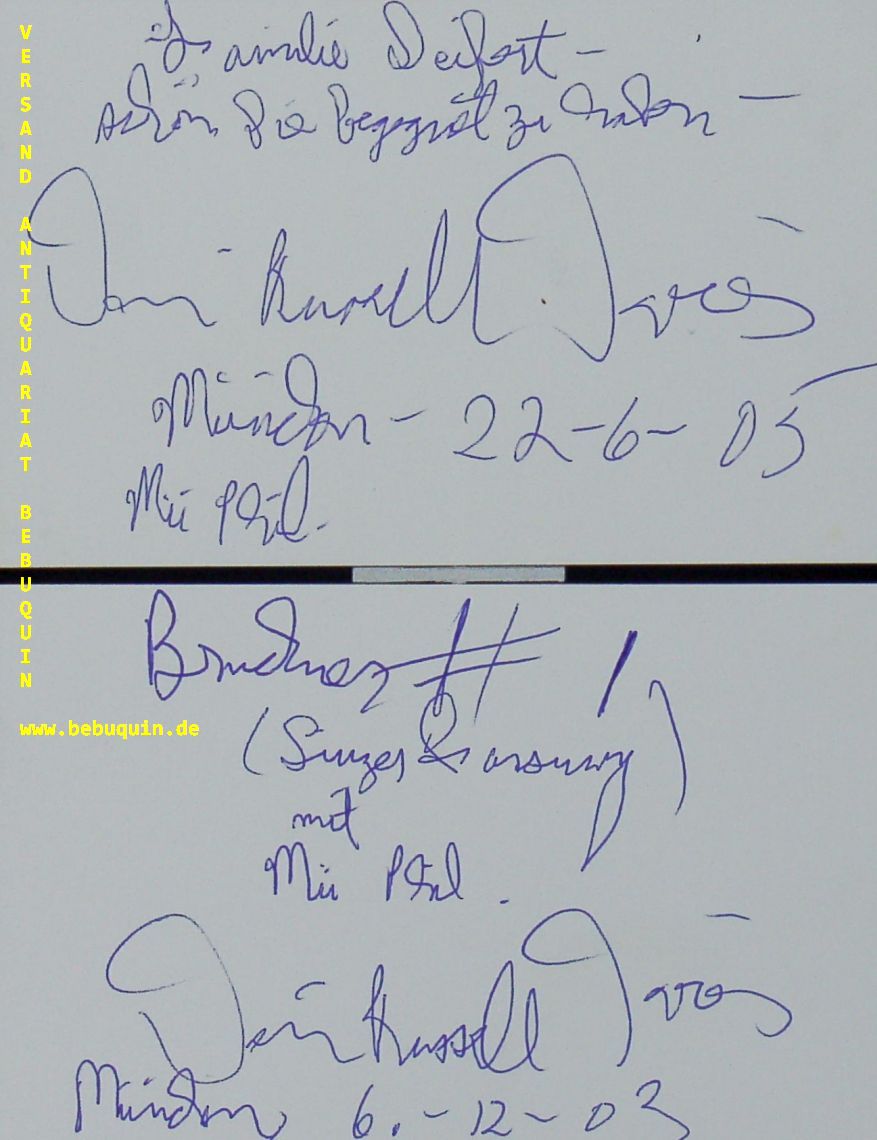 VERSAND ANTIQUARIAT BEBUQUIN
www.bebuquin.de
Familie Seifert –
schön Sie begegnet zu haben –
Dennis Russell Davies
München – 22-6-05
Mü Phil.
Bruckner # 1
(Linzer Fassung)
mit
Mü Phil.
Dennis Russell Davies
München 6.-12-03